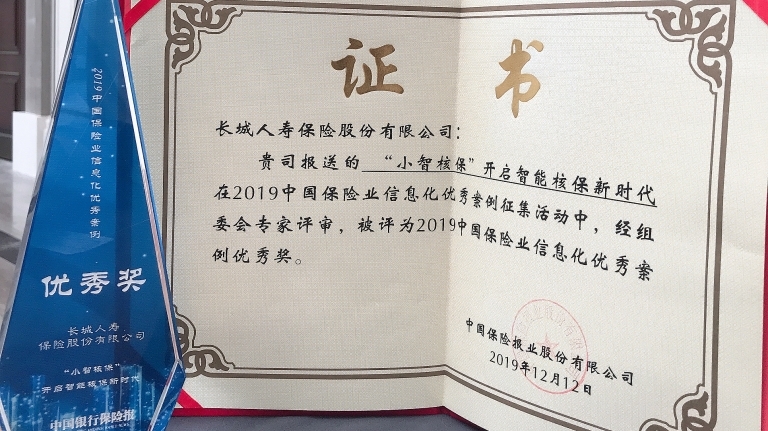 2019中国保险业信息化优秀案例
优秀奖
长城人寿
保险股份有限公司
“小智核保”
开启智能核保新时代
中国银行保险报
证 书
长城人寿保险股份有限公司：
贵司报送的 “小智核保”开启智能核保新时代
在2019中国保险业信息化优秀案例征集活动中，经组
委会专家评审，被评为2019中国保险业信息化优秀案
例优秀奖。
中国保险报业股份有限公司
2019年12月12日